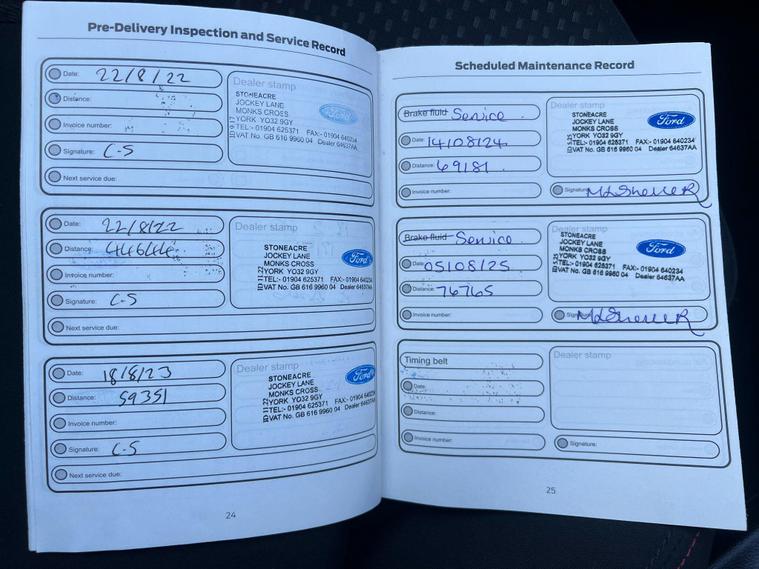 Pre-Delivery Inspection and Service Record
Date: 22/8/22
Distance:
Invoice number:
Signature: C-S
Next service due:
Dealer stamp
STONEACRE
JOCKEY LANE
MONKS CROSS
YORK YO32 9GY
TEL:- 01904 625371 FAX:- 01904 640234
VAT No. GB 616 9960 04 Dealer 64637AA
Ford
Date: 22/8/22
Distance:
Invoice number:
Signature: C-S
Next service due:
Dealer stamp
STONEACRE
JOCKEY LANE
MONKS CROSS
YORK YO32 9GY
TEL:- 01904 625371 FAX:- 01904 640234
VAT No. GB 616 9960 04 Dealer 64637AA
Ford
Date: 18/8/23
Distance: 59351
Invoice number:
Signature: C-S
Next service due:
Dealer stamp
STONEACRE
JOCKEY LANE
MONKS CROSS
YORK YO32 9GY
TEL:- 01904 625371 FAX:- 01904 640234
VAT No. GB 616 9960 04 Dealer 64637AA
Ford
24
Scheduled Maintenance Record
Brake fluid Service
Date: 14/08/24
Distance: 69181
Invoice number:
Dealer stamp
STONEACRE
JOCKEY LANE
MONKS CROSS
YORK YO32 9GY
TEL:- 01904 625371 FAX:- 01904 640234
VAT No. GB 616 9960 04 Dealer 64637AA
Ford
Signature:
Brake fluid Service
Date: 05/08/25
Distance: 76765
Invoice number:
Dealer stamp
STONEACRE
JOCKEY LANE
MONKS CROSS
YORK YO32 9GY
TEL:- 01904 625371 FAX:- 01904 640234
VAT No. GB 616 9960 04 Dealer 64637AA
Ford
Signature:
Timing belt
Date:
Distance:
Invoice number:
Dealer stamp
Signature:
25